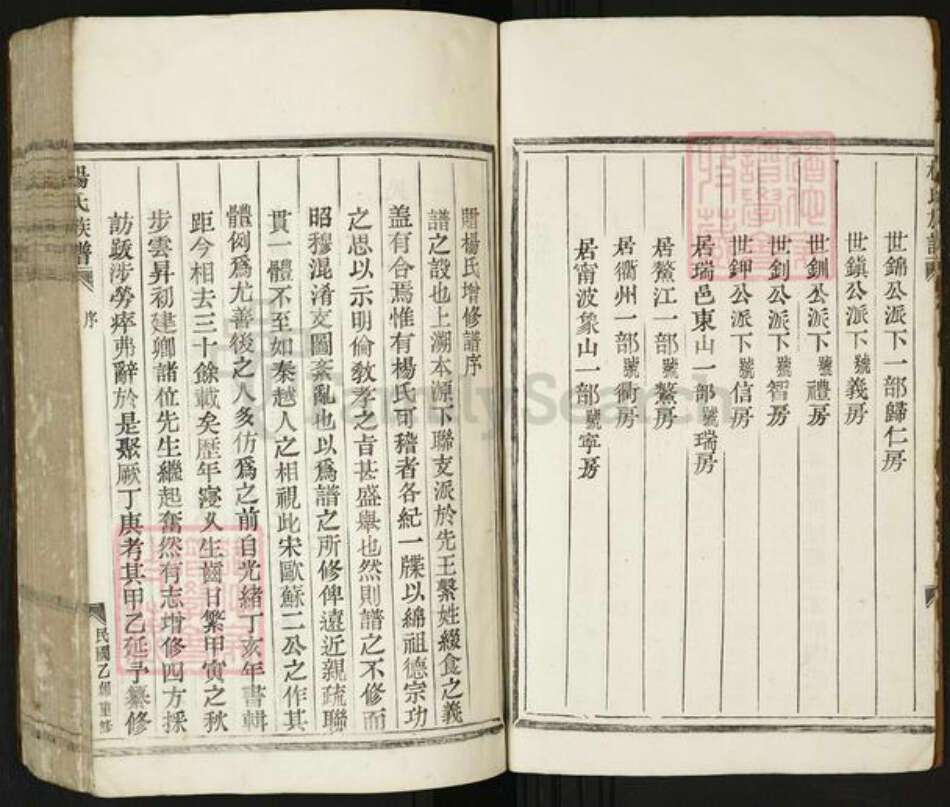 世錦公派下一部歸仁房
世鎮公派下號義房
世釧公派下號禮房
世釗公派下號智房
世鉀公派下號信房
居瑞邑東山一部號瑞房
居鰲江一部號鰲房
居衢州一部號衢房
居甯波象山一部號寧房
楊氏族譜
贈楊氏增修譜序
譜之設也上溯本源下聯支派於先王繫姓綴食之義
蓋有合焉惟有楊氏可稽者各紀一牒以綿祖德宗功
之思以示明倫敎孝之旨甚盛舉也然則譜之不修而
昭穆混淆支圖紊亂也以爲譜之所修俾遠近親疏聯
貫一體不至如秦越人之相視此宋歐蘇二公之作其
體例爲尤善後之人多仿爲之前自光緒丁亥年書輯
距今相去三十餘載矣歷年寖久生齒日繁甲寅之秋
步雲昇初建卿諸位先生繼起奮然有志增修四方採
訪跋涉勞瘁弗辭於是聚厥丁庚考其甲乙延予纂修
楊氏族譜
序
民國乙卯重修
FamilySearch